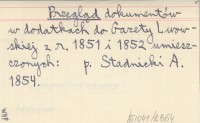 Przegląd dokumentów
w dodatkach do Gazety Lwow-
skiej z r. 1851 i 1852 umiesz-
czonych: p. Stadnicki A.
1854.